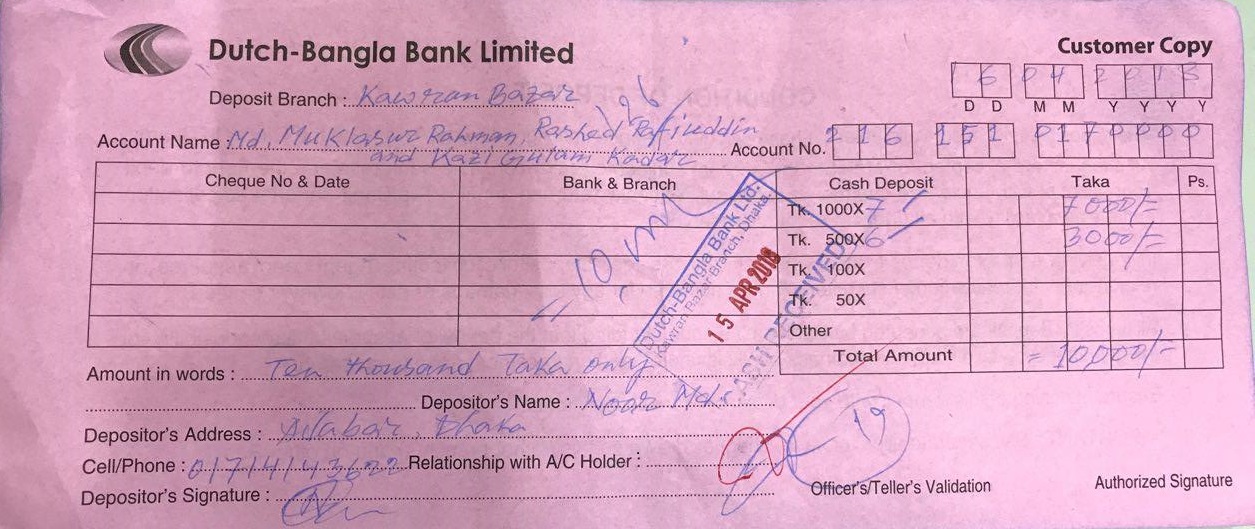 Dutch-Bangla Bank Limited
Customer Copy
16 04 2018
D D M M Y Y Y Y
Deposit Branch : Kawran Bazar
Account Name : Md. Muklasur Rahman, Rashed Rafiuddin
and Kazi Gulam Kader
Account No. 216 151 0170000
Cheque No & Date Bank & Branch Cash Deposit Taka Ps.
Tk. 1000X 7 7000/=
Tk. 500X 6 3000/=
Tk. 100X
Tk. 50X
Other
Total Amount = 10,000/-
Dutch-Bangla Bank Ltd.
Kawran Bazar Branch, Dhaka.
15 APR 2018
CASH RECEIVED
Amount in words : Ten thousand Taka only
Depositor's Name : Noor Md.
Depositor's Address : Dhaka
Cell/Phone : Relationship with A/C Holder :
19
Depositor's Signature :
Officer's/Teller's Validation
Authorized Signature